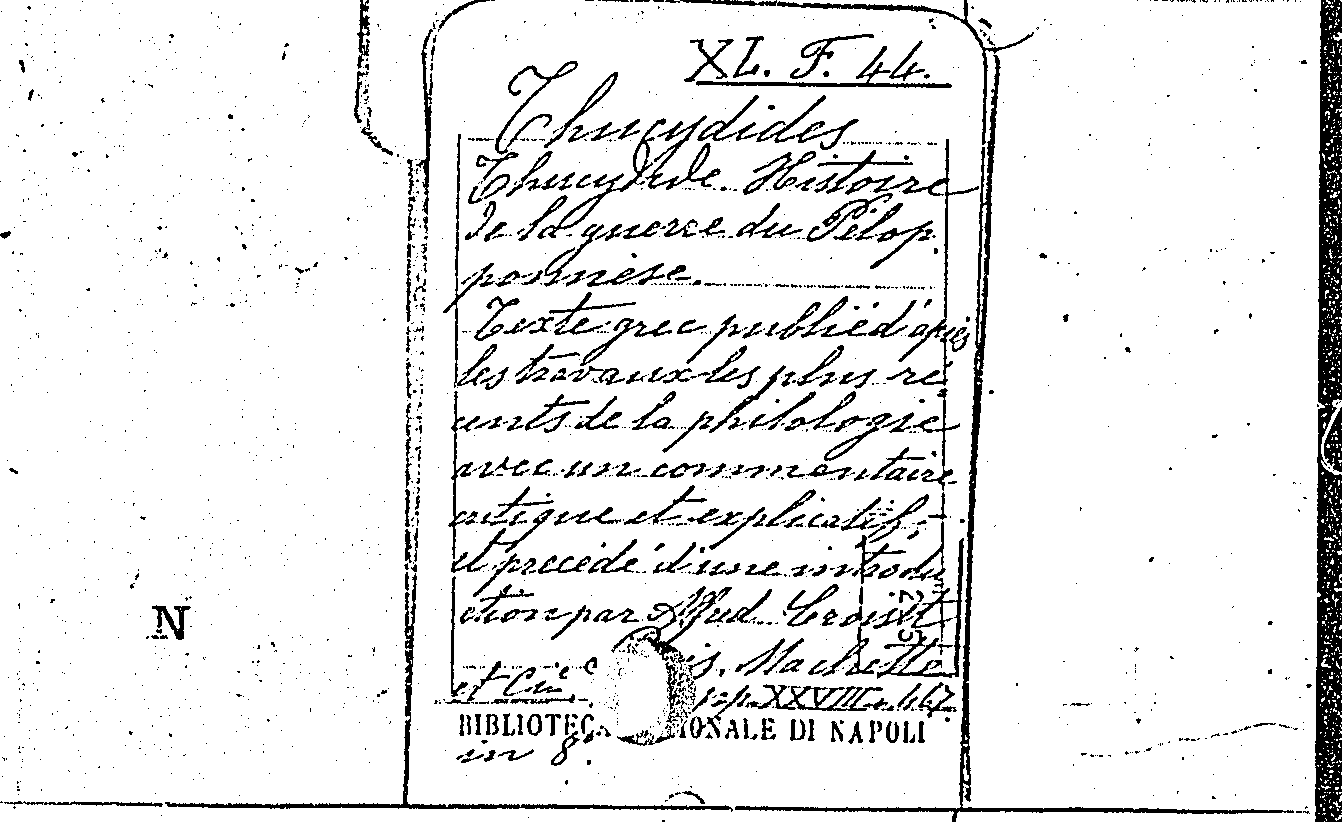 XL. F. 44.
Thucydides
Thucydide. Histoire
de la guerre du Pélop
ponnèse.
Texte grec publiéd'après
les travaux les plus ré
cents de la philologie
avec un commentaire
critique et explicatif,
et precédé d'une introdu
ction par Alfred. Croiset
is. Hachette
et Cie. pp. XXVIII. 447.
BIBLIOTECA IONALE DI NAPOLI
in 8°.
N